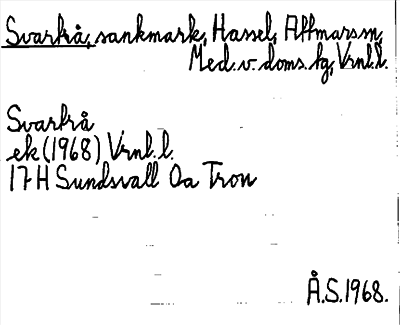 Svarkrå, sankmark, Hassel, Attmars sn,
Med. v. doms. hg, Vrnl. l.
Svarkrå
ek (1968) Vrnl. l.
17 H Sundsvall 0a Tron
Å.S. 1968.